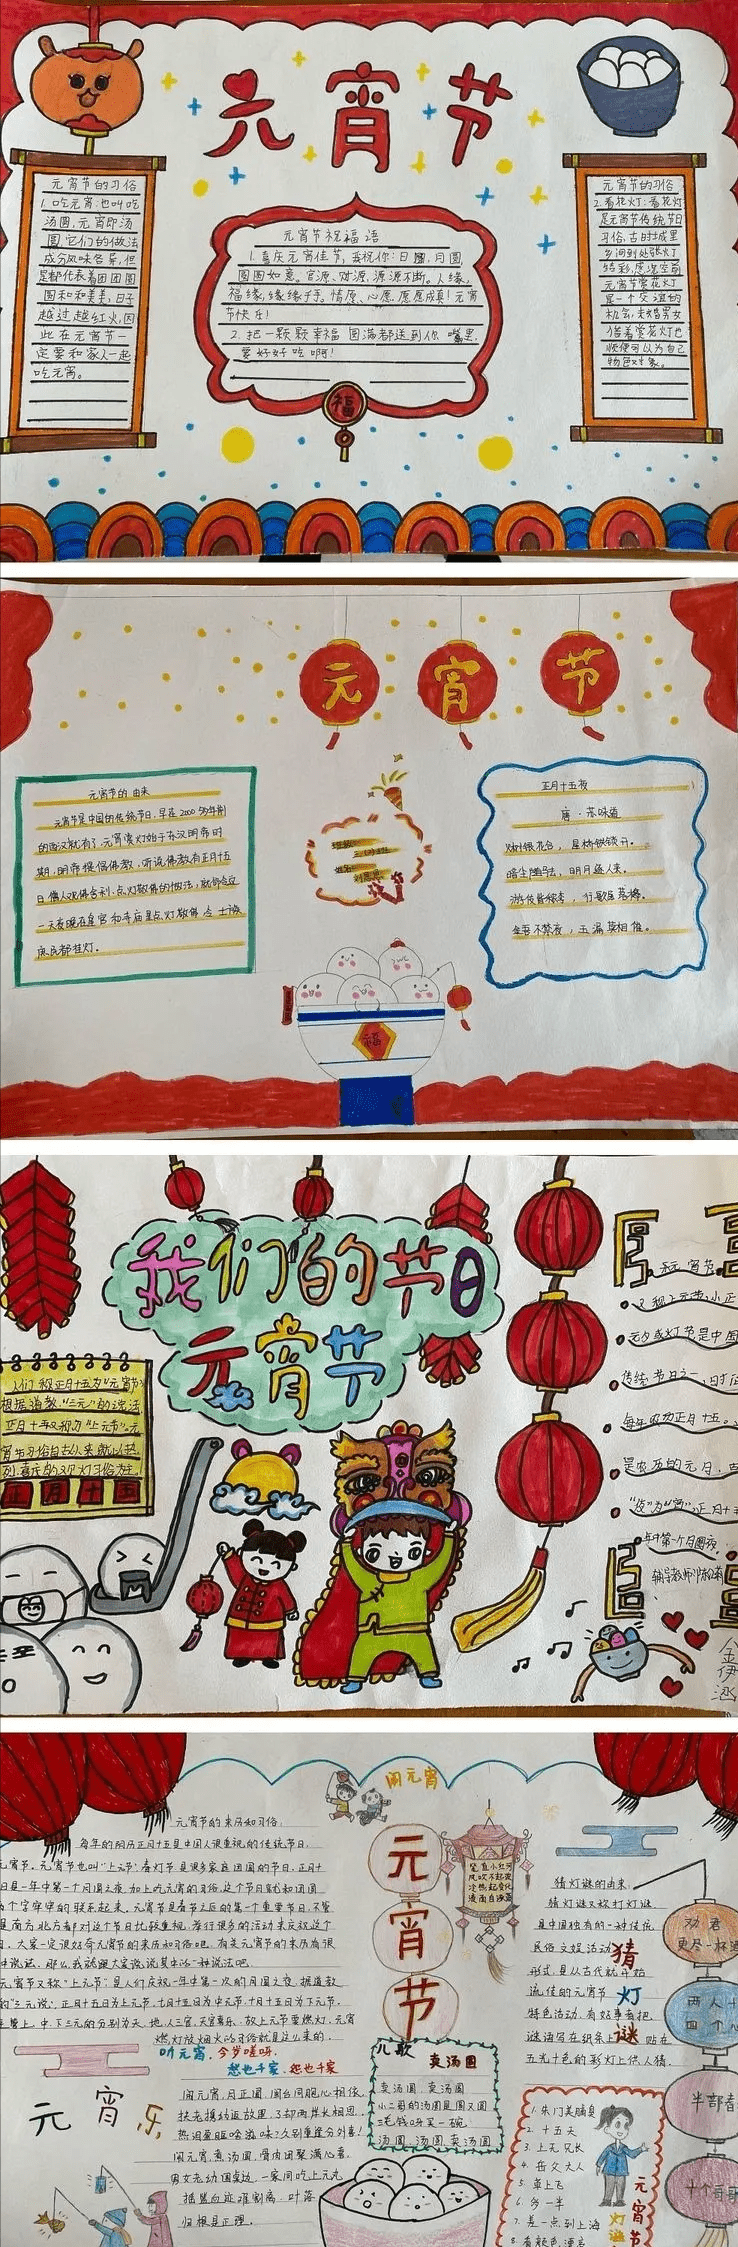 元宵节
元宵节的习俗
1.吃元宵:也叫吃
汤圆,元宵即汤
圆,它们的做法
成分风味各异,但
是都代表着团团圆
圆和和美美,日子
越过越红火,因
此在元宵节一
定要和家人一起
吃元宵。
元宵节祝福语
1.喜庆元宵佳节,恭祝你:日圆,月圆,
圆圆如意。官源、财源,源源不断。人缘,
福缘,缘缘于手。情愿、心愿,愿愿成真!元宵
节快乐!
2.把一颗颗幸福 圆满都送到你嘴里,
要好好吃啊!
福
元宵节的习俗
2.看花灯:看花灯
是元宵节传统节日
习俗,古时城里
乡间到处张灯
结彩,
元宵节赏花灯
是一个交谊的
机会,未婚男女
借着赏花灯也
顺便可以为自己
物色对象。
元宵节
元宵节的由来
元宵节是中国的传统节日,早在2000多年前
的西汉就有了,元宵赏灯始于东汉明帝时
期,明帝提倡佛教,听说佛教有正月十五
日僧人观佛舍利,点灯敬佛的做法,就命令这
一天夜晚在皇宫和寺庙里点灯敬佛,令士族
庶民都挂灯。
班级:
三(3)班
姓名:
正月十五夜
唐·苏味道
火树银花合,星桥铁锁开。
暗尘随马去,明月逐人来。
游伎皆秾李,行歌尽落梅。
金吾不禁夜,玉漏莫相催。
福
我们的节日
元宵节
人们称正月十五为“元宵节”
根据道教“三元”的说法
正月十五又称为“上元节”元
宵节习俗自古以来就以热
列喜庆的观灯习俗为主。
正月十五
元宵节
又称上元节、小正
元夕或灯节是中国
传统节日之一,时在
每年农历正月十五。
是农历的元月,古
“夜”为“宵”,正月十五
一年中第一个月圆夜。
金伊涵
闹元宵
元宵节
元宵节的来历和习俗:
每年的阴历正月十五是中国人很重视的传统节日,
元宵节。元宵节也叫“上元节”春灯节,是很多家庭团圆的节日,正月十
日是一年中第一个月圆之夜,加上吃元宵的习俗,这个节日就和团圆
两个字牢牢的联系起来,元宵节是春节之后的第一个重要节日,不管
是南方北方都对这个节日比较重视,举行很多的活动来庆祝这个
日,大家一定很好奇元宵节的来历和习俗吧,有关元宵节的来历有很
种说法,那么我就跟大家说说其中的一种说法吧
元宵节又称“上元节”是人们庆祝一年中第一次的月圆之夜,据道教
的“三元说”,正月十五日为上元节,七月十五日为中元节,十月十五日为下元节,
主管上、中、下三元的分别为天、地、人三官,天官喜乐,故上元节要燃灯,元宵
燃灯放烟火的习俗就是这么来的。
听元宵,今岁嗟呀,
愁也千家,怨也千家
元宵乐
闹元宵,月正圆,国台同胞心相依。
扶老携幼返故里,了却两岸长相思。
热泪盈眶啥滋味?久别重逢分外喜!
闹元宵,煮汤圆,骨肉团聚满心喜。
男女老幼围桌边,一家同吃上元丸
摇篮血迹难割离,叶落
归根是正理。
儿歌
卖汤圆
卖汤圆,卖汤圆
小二哥的汤圆是圆又圆
三毛钱呀买一碗
汤圆,汤圆,卖汤圆
猜灯谜的由来:
猜灯谜又称打灯谜
是中国独有的一种传统
民俗文娱活动
形式,是从古代就开始
流传的元宵节
特色活动,有好事者把
谜语写在纸条上,贴在
五光十色的彩灯上供人猜。
猜灯谜
1.朱门美脯臭
2.十五天
3.上无兄长
4.岳父大人
5.草上飞
6.多一半
7.差一点到上海
元宵节灯谜
劝君
更尽一杯酒
两人十
四个心
半部春
十个哥哥